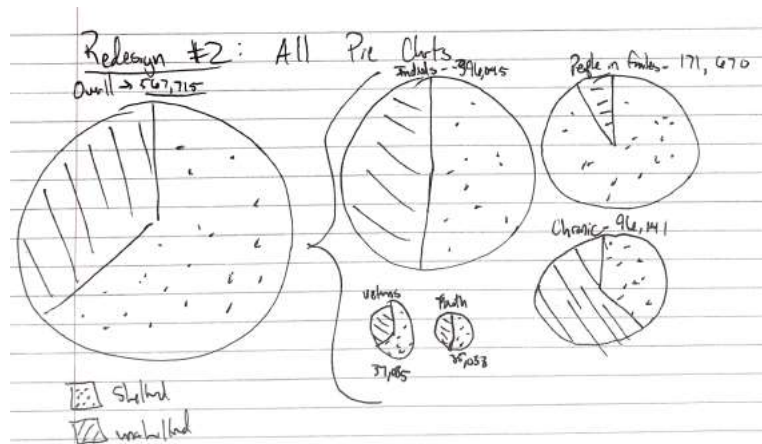 Redesign #2: All Pie Charts
Overall → 567,715
Individs - 396,045
People in families - 171,670
Chronic - 96,141
Veterans
37,085
Youth
35,038
Sheltered
unsheltered